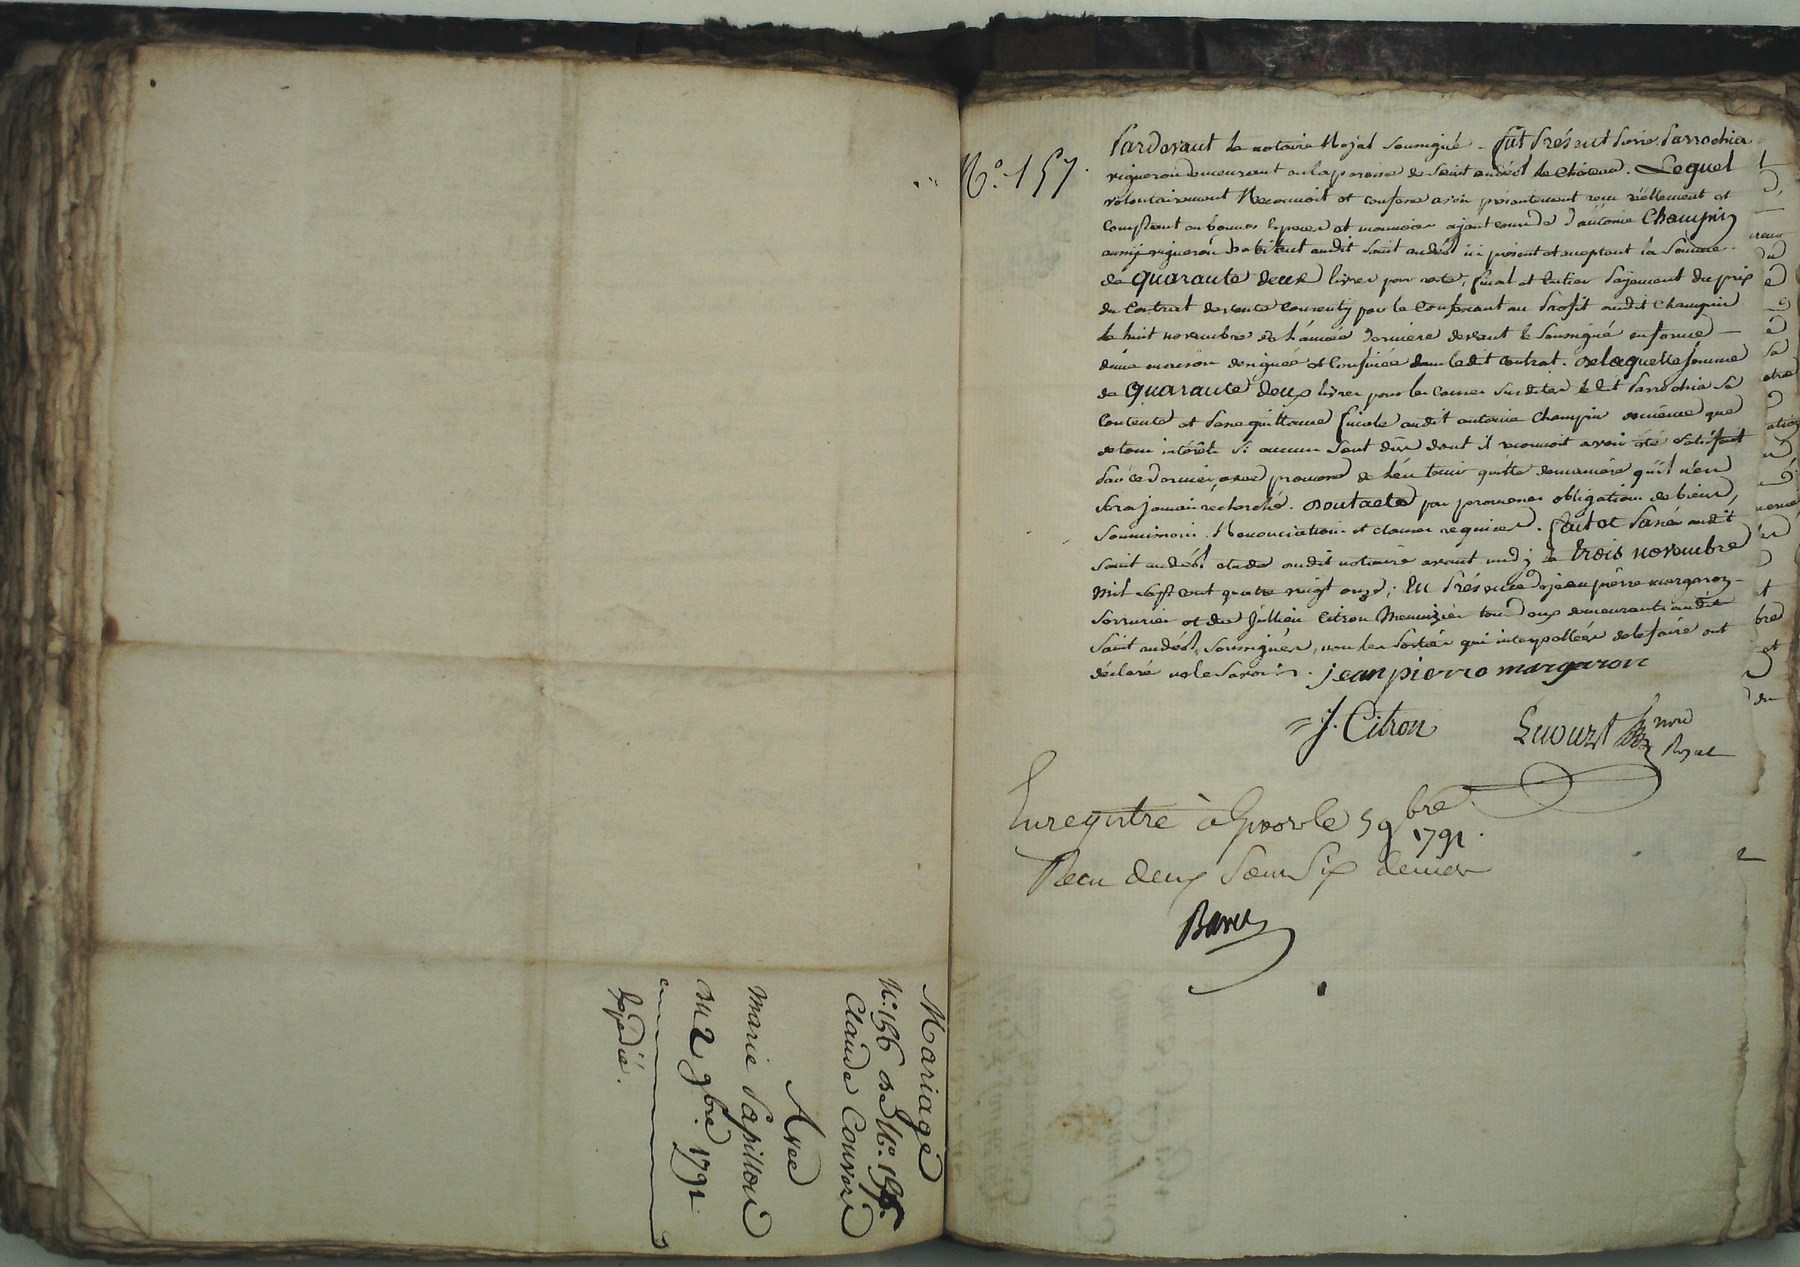 Mariage
N.° 156 de N.° 195.
Claude Couvert
Avec
marie Papillon
Du 2 9bre 1791
Expédié.
N.° 157.
Pardevant le notaire Royal soussigné. fut Présent Pierre Parrochia
vigneron demeurant en la paroisse de saint andéol le chateau. Lequel
volontairement Reconnoit et confesse avoir présentement reçu réellement et
comptant en bonnes Especes et monnoies ayant cours de D'antoine Champin
aussy vigneron habitant audit saint andéol ici présent et acceptant la somme
de quarante deux livres pour reste, final et Entier Payement du prix
du Contrat de vente consenty par le Confessant au Profit audit Champin
le huit novembre de l'année derniere devant le soussigné en forme
d'une maison designée et Confinée dans ledit contrat. De laquelle somme
de quarante deux livres pour les causes susdites ledit Parrochia se
Contente et Passe quittance finale audit antoine Champin de même que
de tous intérêts si aucuns sont dûs dont il reconnoit avoir été satisfait
Par ce dernier, avec promesse de l'en tenir quitte de maniere qu'il n'en
sera jamais recherché. Dont acte par promesses obligation de biens,
soumissions, Renonciations et clauses requises. fait et Passé audit
saint andéol étude dudit notaire avant midy le trois novembre
mil sept cent quatre vingt onze; En Présence de jean pierre margaron
serrurier et de Jullien Citron Menuizier tous deux demeurants audit
saint andéol, soussignés, non les Parties qui interpellées de le faire ont
déclaré ne le savoir. jean pierre margaron
J. Citron
Royal
Enregistré à Givors le 5 9bre
1791.
Reçu deux sous six deniers